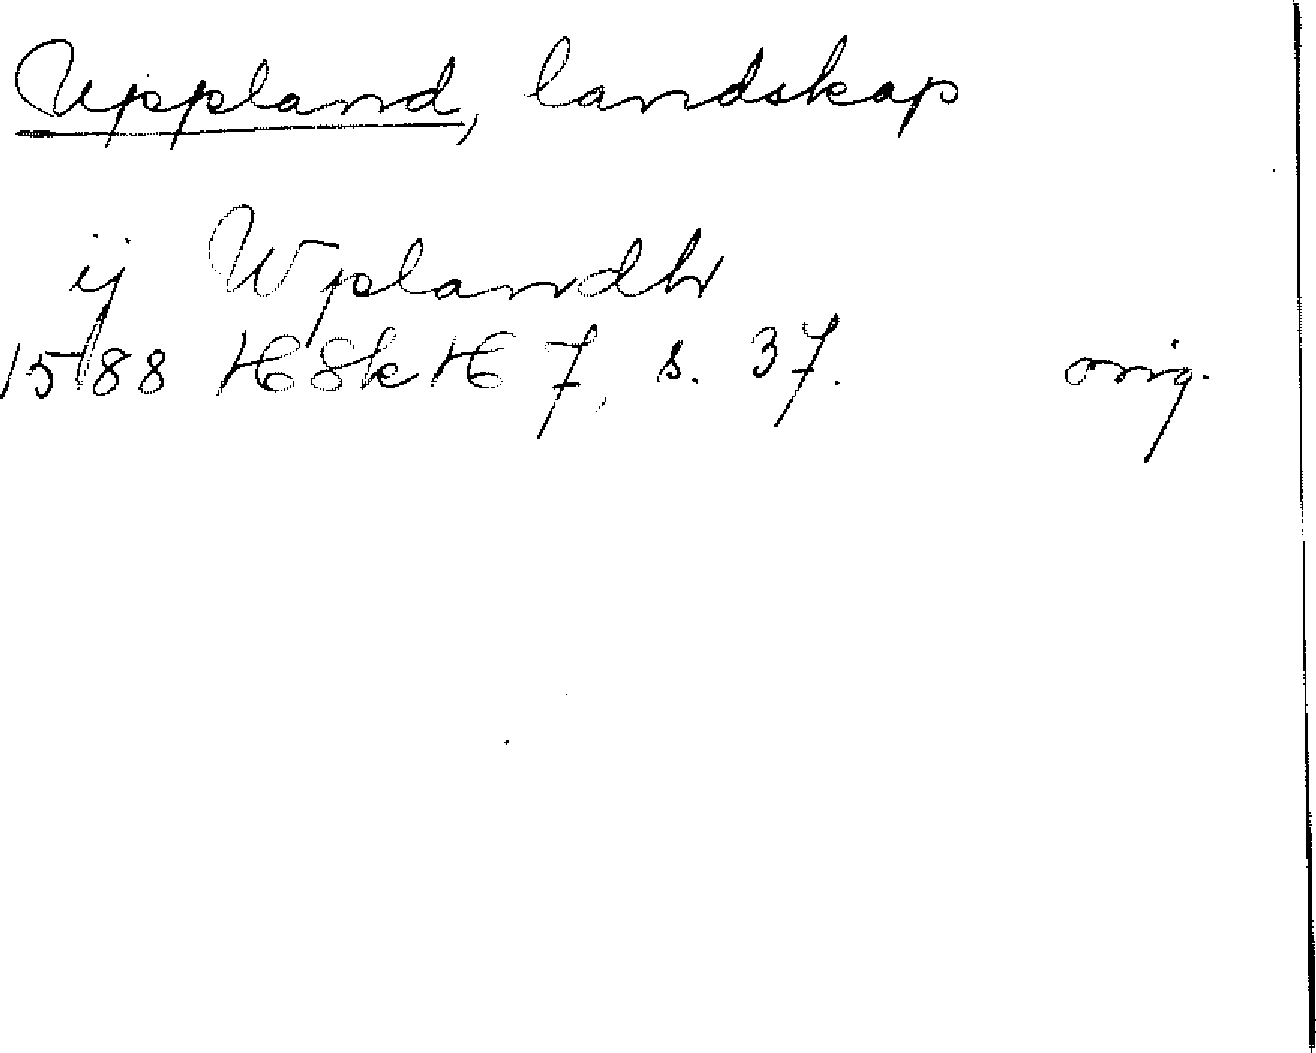 Uppland, landskap
ij Wplandh
1588 HSkH 7, s. 37. orig.